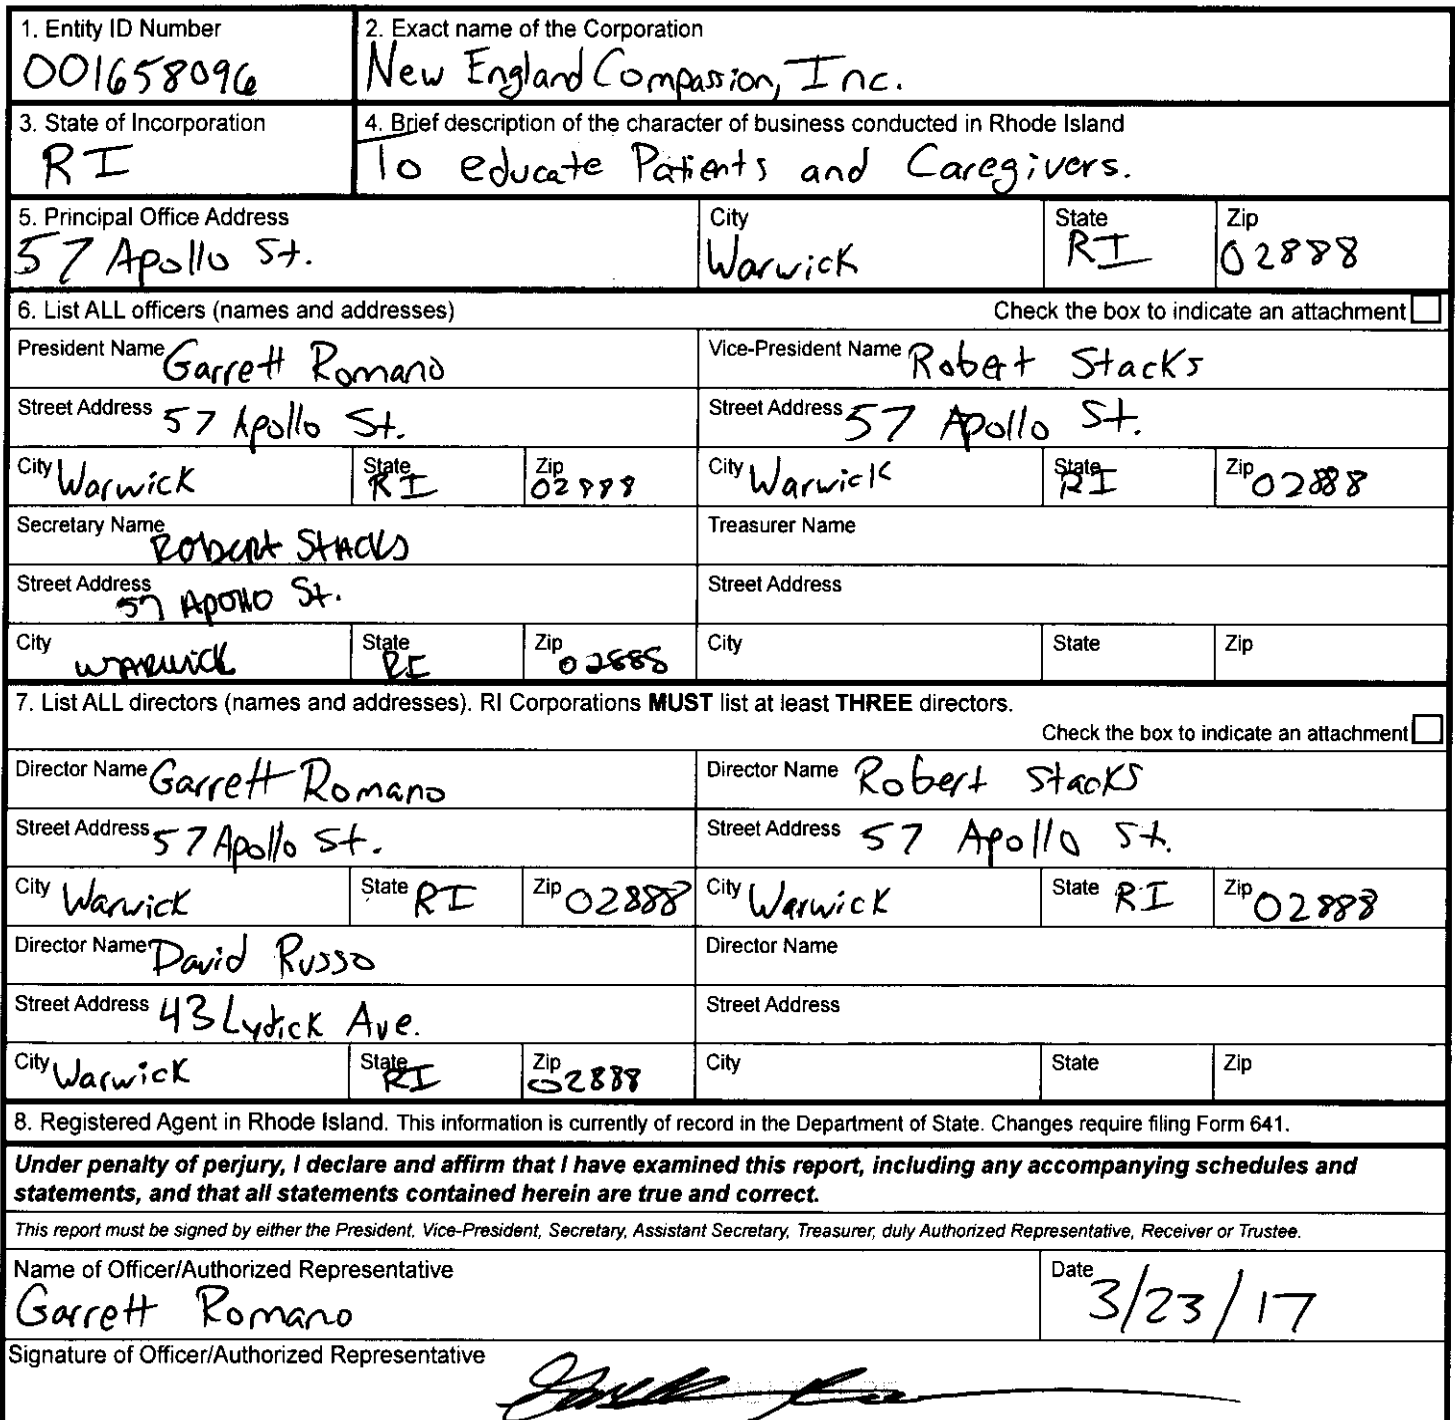 1. Entity ID Number
001658096
2. Exact name of the Corporation
New England Compassion, Inc.
3. State of Incorporation
RI
4. Brief description of the character of business conducted in Rhode Island
To educate Patients and Caregivers.
5. Principal Office Address
57 Apollo St.
City
Warwick
State
RI
Zip
02888
6. List ALL officers (names and addresses)
Check the box to indicate an attachment
President Name Garrett Romano
Vice-President Name Robert Stacks
Street Address 57 Apollo St.
Street Address 57 Apollo St.
City Warwick
State RI
Zip 02888
City Warwick
State RI
Zip 02888
Secretary Name Robert Stacks
Treasurer Name
Street Address 57 Apollo St.
Street Address
City Warwick
State RI
Zip 02888
City
State
Zip
7. List ALL directors (names and addresses). RI Corporations MUST list at least THREE directors.
Check the box to indicate an attachment
Director Name Garrett Romano
Director Name Robert Stacks
Street Address 57 Apollo St.
Street Address 57 Apollo St.
City Warwick
State RI
Zip 02888
City Warwick
State RI
Zip 02888
Director Name David Russo
Director Name
Street Address 43 Lydick Ave.
Street Address
City Warwick
State RI
Zip 02888
City
State
Zip
8. Registered Agent in Rhode Island. This information is currently of record in the Department of State. Changes require filing Form 641.
Under penalty of perjury, I declare and affirm that I have examined this report, including any accompanying schedules and
statements, and that all statements contained herein are true and correct.
This report must be signed by either the President, Vice-President, Secretary, Assistant Secretary, Treasurer, duly Authorized Representative, Receiver or Trustee.
Name of Officer/Authorized Representative
Garrett Romano
Date
3/23/17
Signature of Officer/Authorized Representative